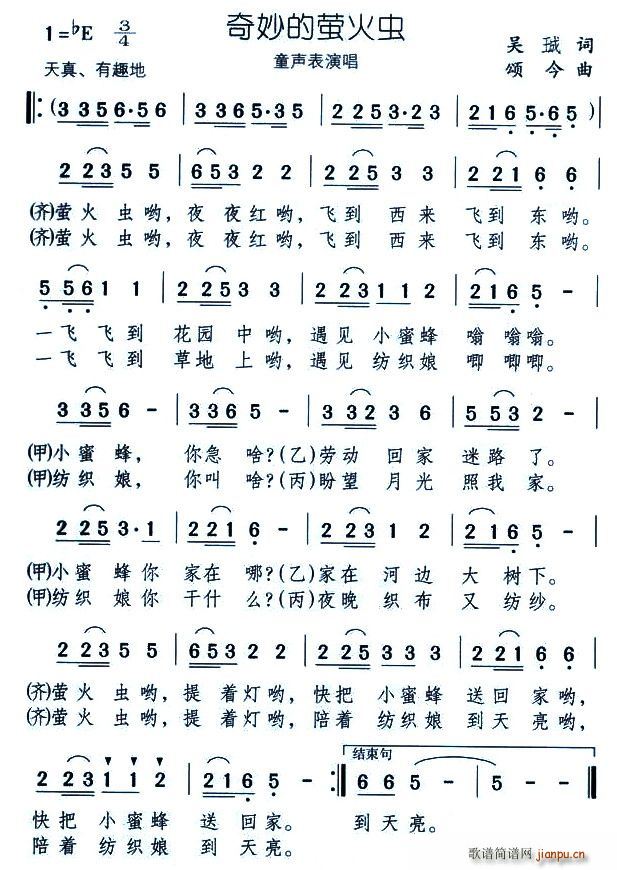 奇妙的萤火虫
1=♭E 3/4
吴 珹 词
天真、有趣地
童声表演唱
颂 今 曲
‖: (3 3 5 6·5 6 | 3 3 6 5·3 5 | 2 2 5 3·2 3 | 2 1 6 5·6 5) |
2 2 3 5 5 | 6 5 3 2 2 | 2 2 5 3 3 | 2 2 1 6 6 |
(齐)萤 火 虫 哟, 夜 夜 红 哟, 飞 到 西 来 飞 到 东 哟。
(齐)萤 火 虫 哟, 夜 夜 红 哟, 飞 到 西 来 飞 到 东 哟。
5 5 6 1 1 | 2 2 5 3 3 | 2 2 3 1 1 2 | 2 1 6 5 - |
一 飞 飞 到 花 园 中 哟, 遇 见 小 蜜 蜂 嗡 嗡 嗡。
一 飞 飞 到 草 地 上 哟, 遇 见 纺 织 娘 唧 唧 唧。
3 3 5 6 - | 3 3 6 5 - | 3 3 2 3 6 | 5 5 3 2 - |
(甲)小 蜜 蜂, 你 急 啥?(乙)劳 动 回 家 迷 路 了。
(甲)纺 织 娘, 你 叫 啥?(丙)盼 望 月 光 照 我 家。
2 2 5 3·1 | 2 2 1 6 - | 2 2 5 3 3 | 2 1 6 5 - |
(甲)小 蜜 蜂 你 家 在 哪?(乙)家 在 河 边 大 树 下。
(甲)纺 织 娘 你 干 什 么?(丙)夜 晚 织 布 又 纺 纱。
2 2 3 5 5 | 6 5 3 2 2 | 2 2 5 3 3 3 | 2 2 1 6 6 |
(齐)萤 火 虫 哟, 提 着 灯 哟, 快 把 小 蜜 蜂 送 回 家 哟,
(齐)萤 火 虫 哟, 提 着 灯 哟, 陪 着 纺 织 娘 到 天 亮 哟,
结束句
2 2 3 1 1 2 | 2 1 6 5 - :‖ 6 6 5 - | 5 - 0 ‖
快 把 小 蜜 蜂 送 回 家。 到 天 亮。
陪 着 纺 织 娘 到 天 亮。
歌谱简谱网
jianpu.cn